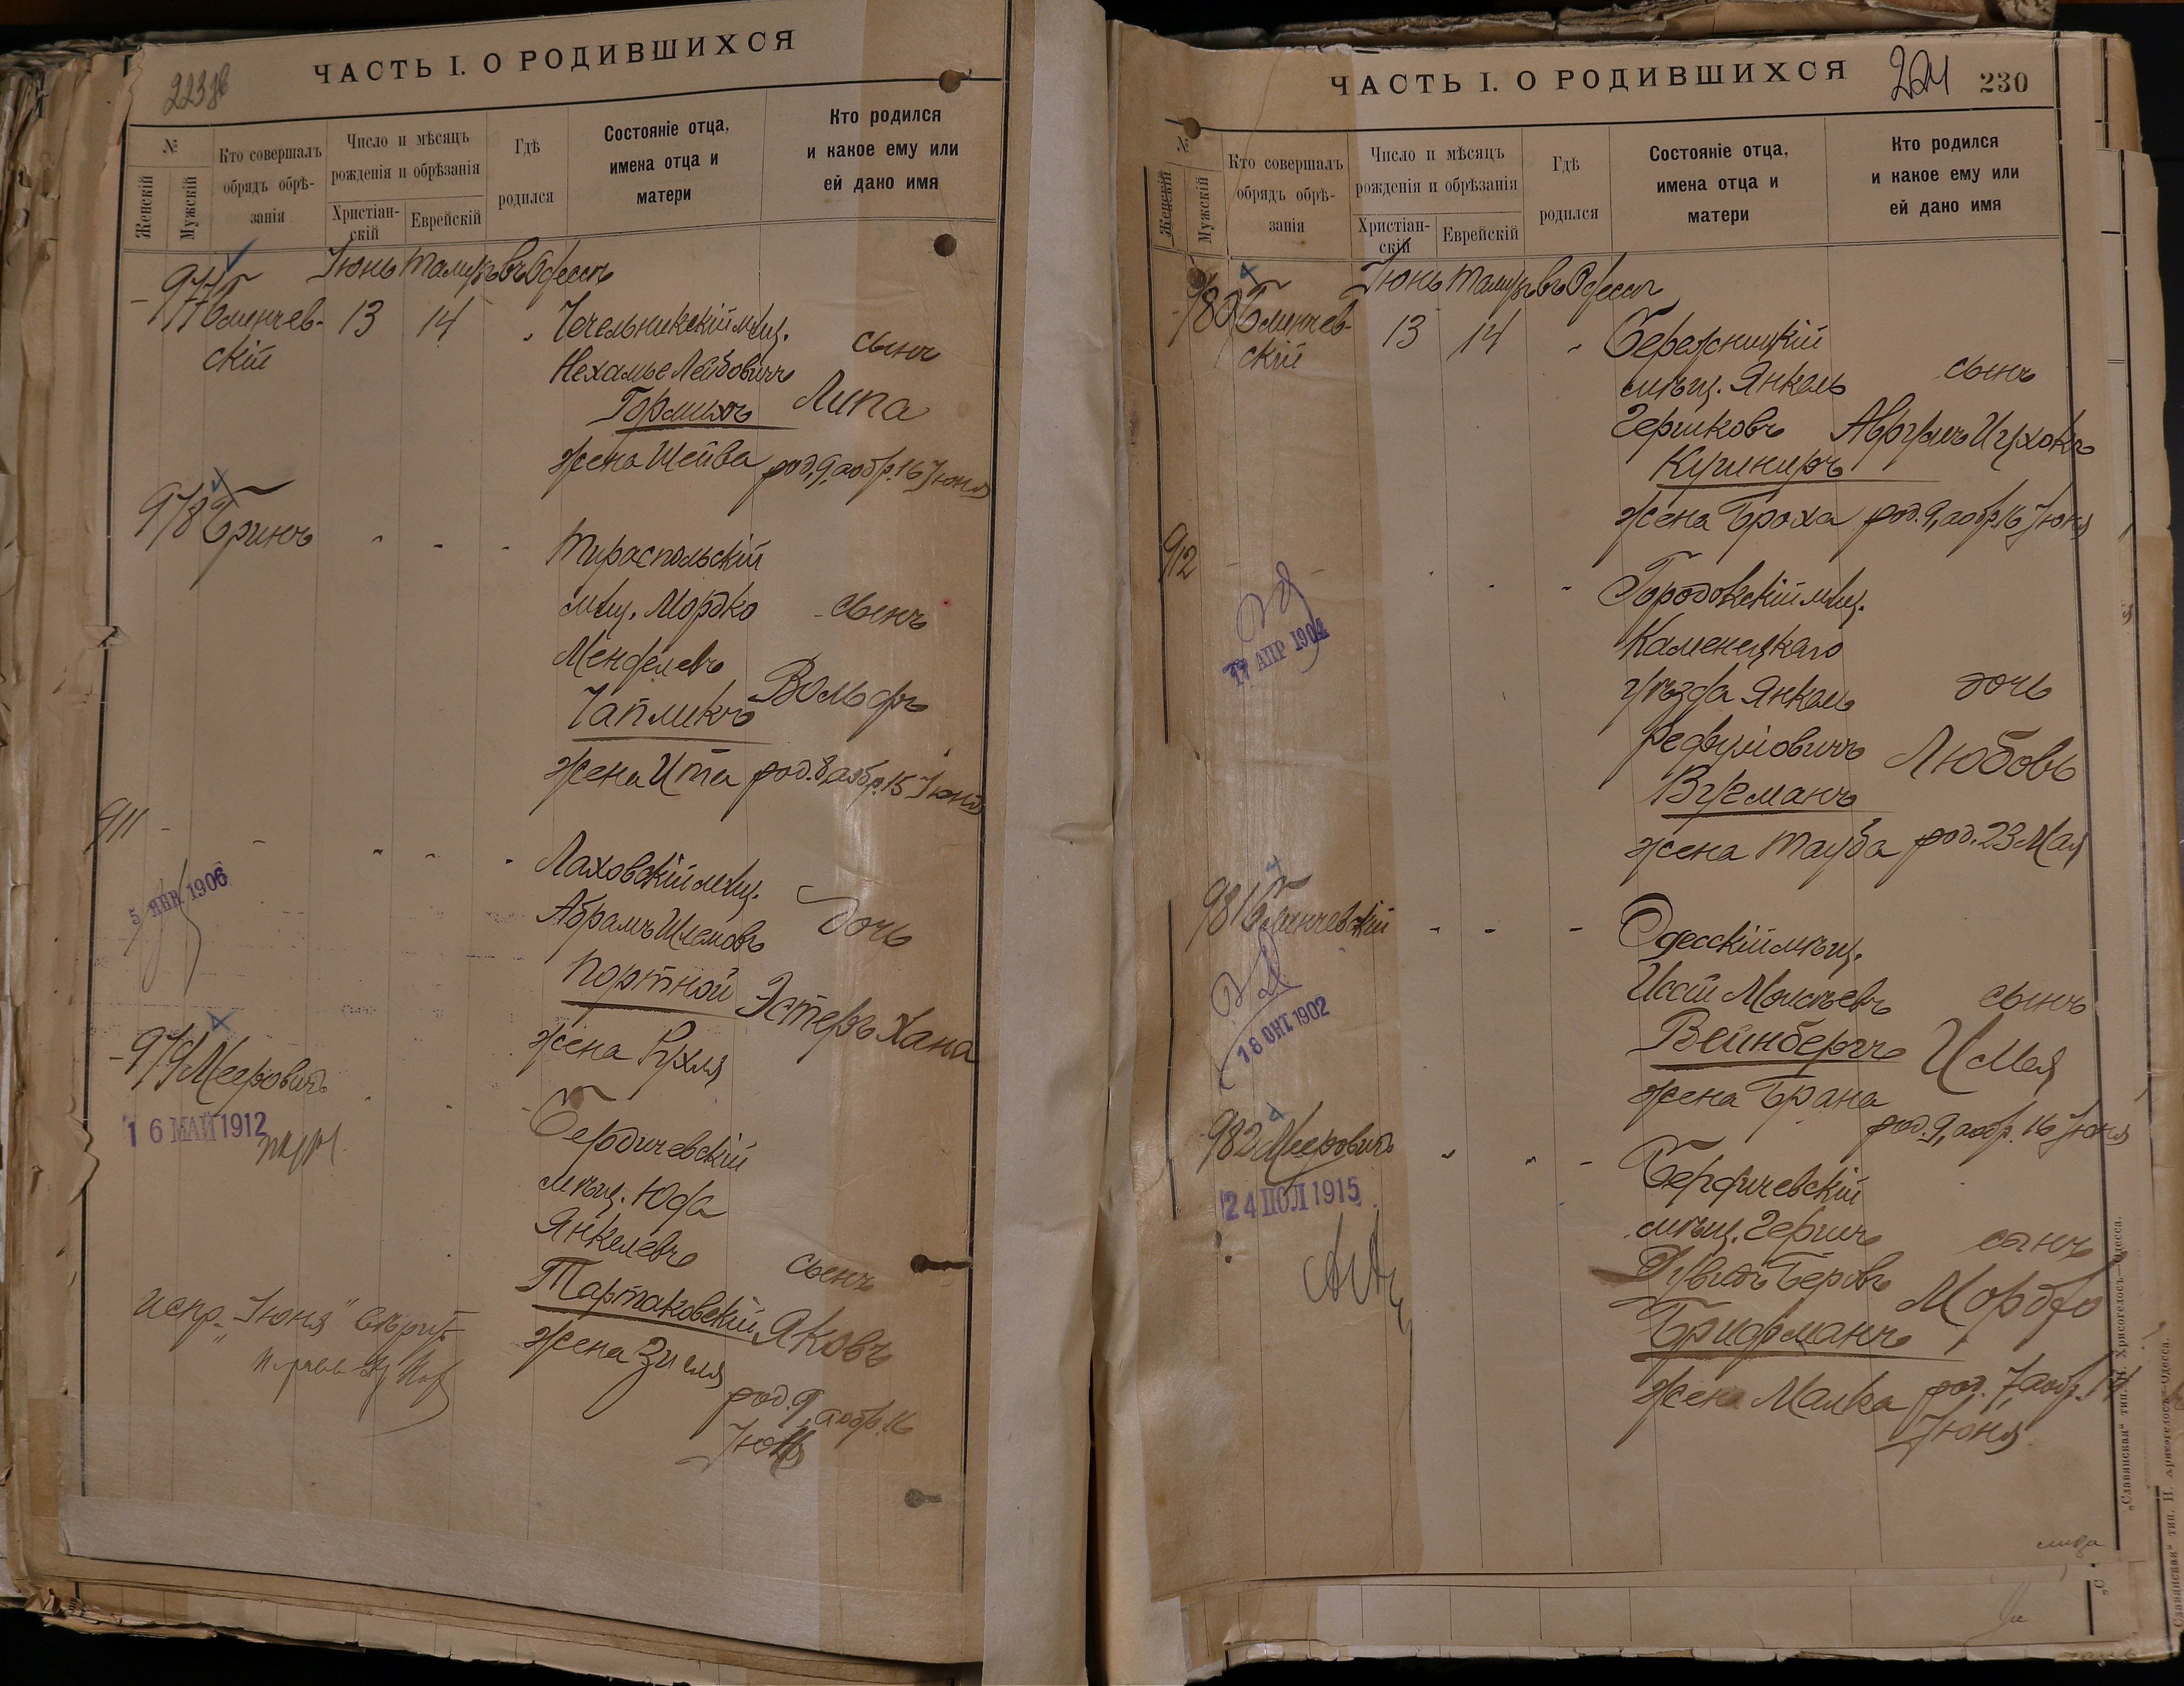 ЧАСТЬ I. О РОДИВШИХСЯ
№
Женскій
Мужскій
Кто совершалъ
обрядъ обрѣ-
занія
Число и мѣсяцъ
рожденія и обрѣзанія
Христіан-
скій
Еврейскій
Гдѣ
родился
Состояніе отца,
имена отца и
матери
Кто родился
и какое ему или
ей дано имя
Іюнь Тамузъ въ Одессѣ
977 Блинчев-
скій
13 14
Чечельникскій мѣщ.
Нехамье Лейбовичъ
Горликъ
жена Шейва
сынъ
Липа
род. 9, а обр. 16 Іюня
978 Бринъ
Тираспольскій
мѣщ. Мордко
Менделевъ
Чапликъ
жена Ита
сынъ
Вольфъ
род. 8, а обр. 15 Іюня
911
5 ЯНВ. 1906
Ляховскій мѣщ.
Абрамъ Шлемовъ
Портной
жена Рухля
дочь
Эстеръ Хана
979 Мееровичъ
16 МАЙ 1912
Бердичевскій
мѣщ. Юда
Янкелевъ
Тартаковскій
жена Зисля
сынъ
Яковъ
род. 9, а обр. 16
Іюня
испр. „Іюня"
ЧАСТЬ I. О РОДИВШИХСЯ
224 230
№
Женскій
Мужскій
Кто совершалъ
обрядъ обрѣ-
занія
Число и мѣсяцъ
рожденія и обрѣзанія
Христіан-
скій
Еврейскій
Гдѣ
родился
Состояніе отца,
имена отца и
матери
Кто родился
и какое ему или
ей дано имя
Іюнь Тамузъ въ Одессѣ
980 Блинчев-
скій
13 14
Бережницкій
мѣщ. Янкель
Гершковъ
Кушниръ
жена Броха
сынъ
Авраамъ Ицхокъ
род. 9, а обр. 16 Іюня
912
17 АПР 1904
Городокскій мѣщ.
Каменецкаго
уѣзда Янкель
Рефуловичъ
Вугманъ
жена Тауба
дочь
Любовь
род. 23 Мая
981 Блинчевскій
18 ОКТ 1902
Одесскій мѣщ.
Иосій Моисѣевъ
Вейнбергъ
жена Брана
сынъ
род. 9, а обр. 16 Іюня
982 Мееровичъ
24 ІЮЛ 1915
Бердичевскій
мѣщ. Гершъ
Берко
Брифманъ
жена Малка
сынъ
Мордко
род. 7, а обр. 14
Іюня
„Славянская" тип. Н. Хрисогелосъ—Одесса.